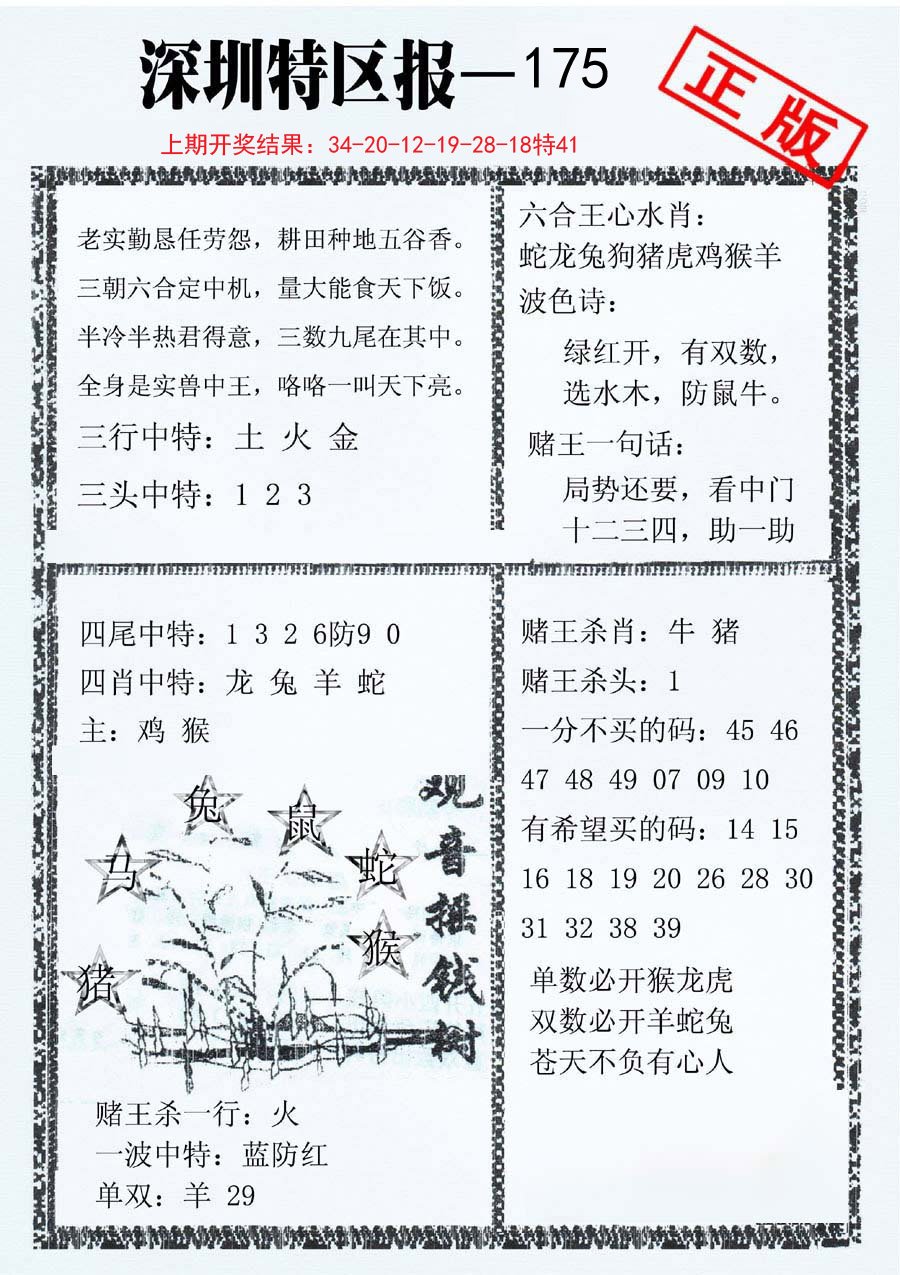 深圳特区报—175
正版
上期开奖结果：34-20-12-19-28-18特41
老实勤恳任劳怨，耕田种地五谷香。
三朝六合定中机，量大能食天下饭。
半冷半热君得意，三数九尾在其中。
全身是实兽中王，咯咯一叫天下亮。
三行中特：土 火 金
三头中特：1 2 3
六合王心水肖：
蛇龙兔狗猪虎鸡猴羊
波色诗：
绿红开，有双数，
选水木，防鼠牛。
赌王一句话：
局势还要，看中门
十二三四，助一助
四尾中特：1 3 2 6防9 0
四肖中特：龙 兔 羊 蛇
主：鸡 猴
兔
鼠
马
蛇
猴
猪
观音摇钱树
赌王杀一行：火
一波中特：蓝防红
单双：羊 29
赌王杀肖：牛 猪
赌王杀头：1
一分不买的码：45 46
47 48 49 07 09 10
有希望买的码：14 15
16 18 19 20 26 28 30
31 32 38 39
单数必开猴龙虎
双数必开羊蛇兔
苍天不负有心人